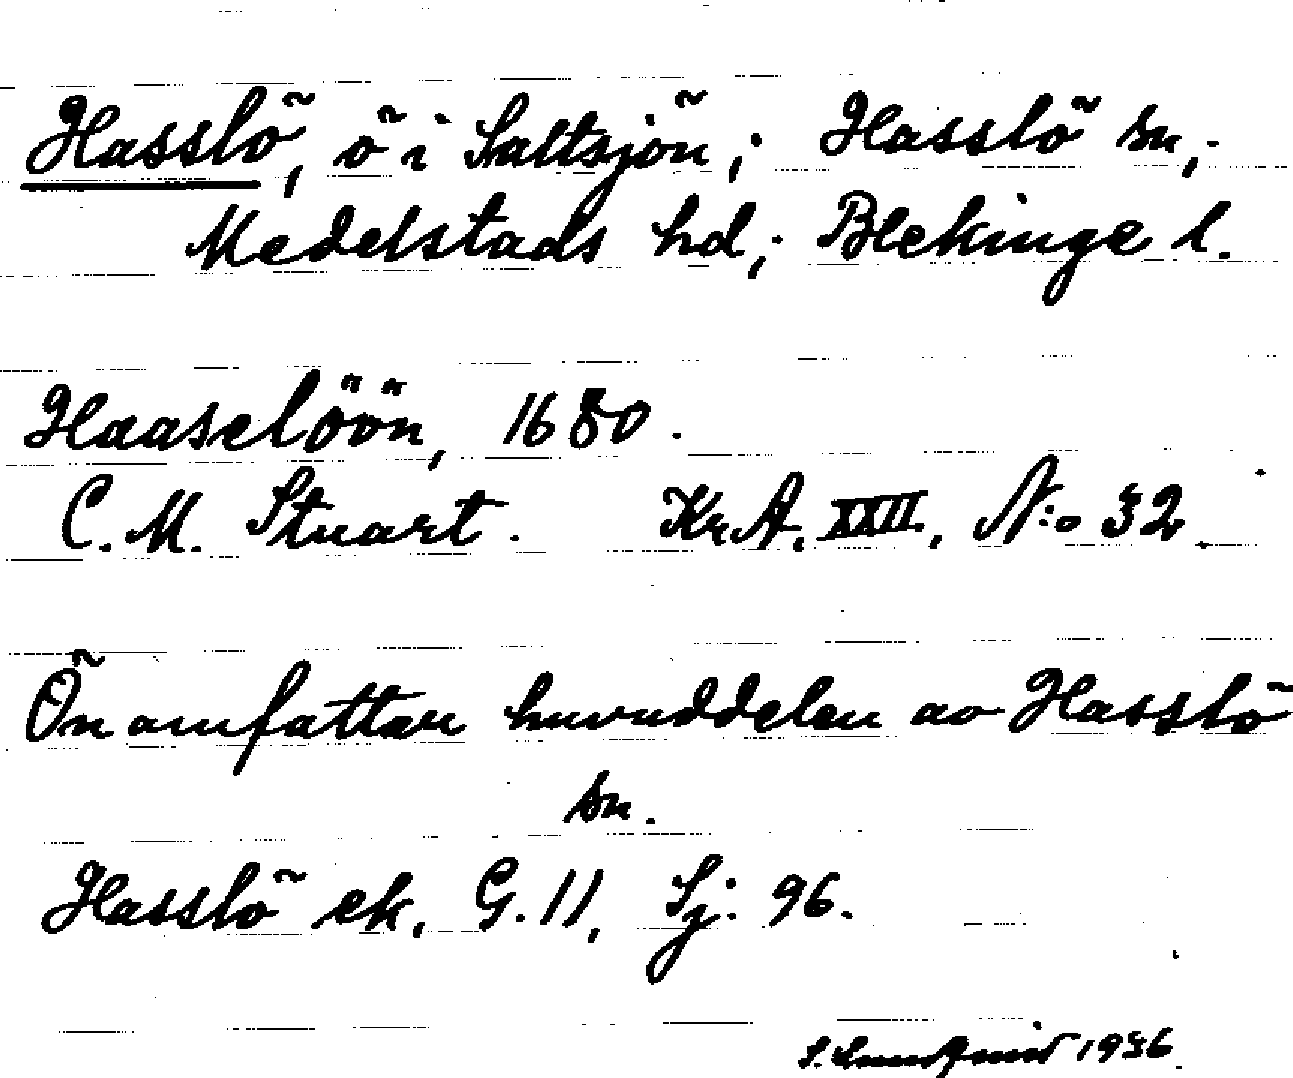 Hasslö, ö i Saltsjön; Hasslö sn,
Medelstads hd; Blekinge l.
Haaselöön, 1680.
C. M. Stuart. Kr.A. XXII, N:o 32.
Ön omfattar huvuddelen av Hasslö
sn.
Hasslö ek. G. 11, Sj: 96.
S. Lundqvist 1936